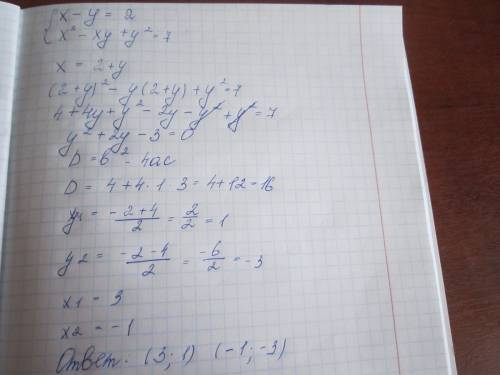 { x - y = 2
x² - xy + y² = 7
x = 2 + y
(2+y)² - y(2+y) + y² = 7
4 + 4y + y² - 2y - y² + y² = 7
y² + 2y - 3 = 0
D = b² - 4ac
D = 4 + 4 · 1 · 3 = 4 + 12 = 16
y1 = (-2+4)/2 = 2/2 = 1
y2 = (-2-4)/2 = -6/2 = -3
x1 = 3
x2 = -1
Ответ. (3; 1) (-1; -3)